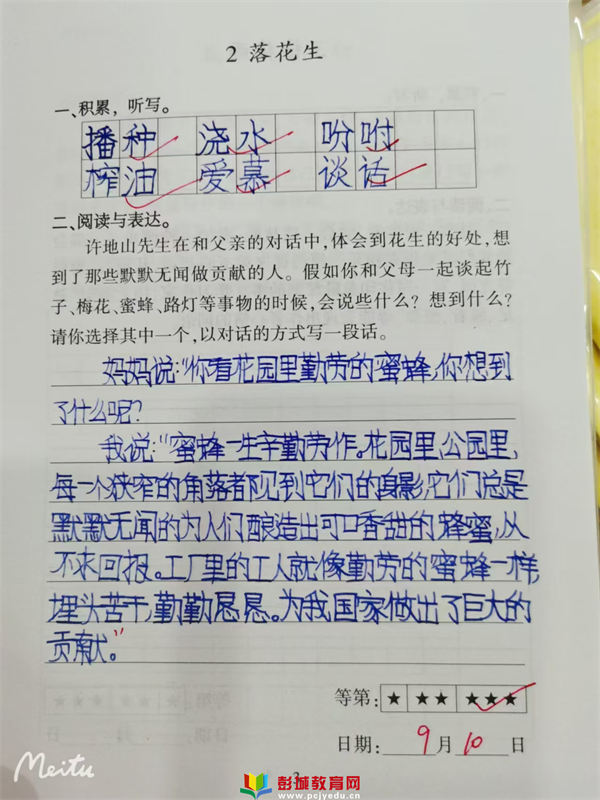 2 落花生
一、积累，听写。
播种 浇水 吩咐
榨油 爱慕 谈话
二、阅读与表达。
许地山先生在和父亲的对话中，体会到花生的好处，想
到了那些默默无闻做贡献的人。假如你和父母一起谈起竹
子、梅花、蜜蜂、路灯等事物的时候，会说些什么？想到什么？
请你选择其中一个，以对话的方式写一段话。
妈妈说：“你看花园里勤劳的蜜蜂，你想到
了什么呢？
我说：“蜜蜂一生辛勤劳作。花园里，公园里，
每一个狭窄的角落都见到它们的身影，它们总是
默默无闻的为人们酿造出可口香甜的蜂蜜，从
不求回报。工厂里的工人就像勤劳的蜜蜂一样，
埋头苦干，勤勤恳恳。为我国家做出了巨大的
贡献。”
等第：★ ★★ ★★★
日期：9月10日
3
Meitu
彭城教育网
www.pcjyedu.cn